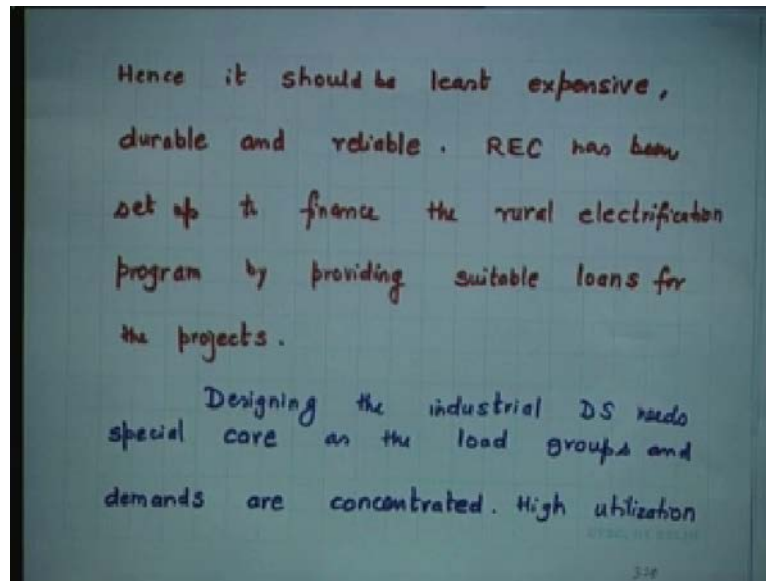 Hence it should be least expensive,
durable and reliable. REC has been
set up to finance the rural electrification
program by providing suitable loans for
the projects.
Designing the industrial DS needs
special care as the load groups and
demands are concentrated. High utilization